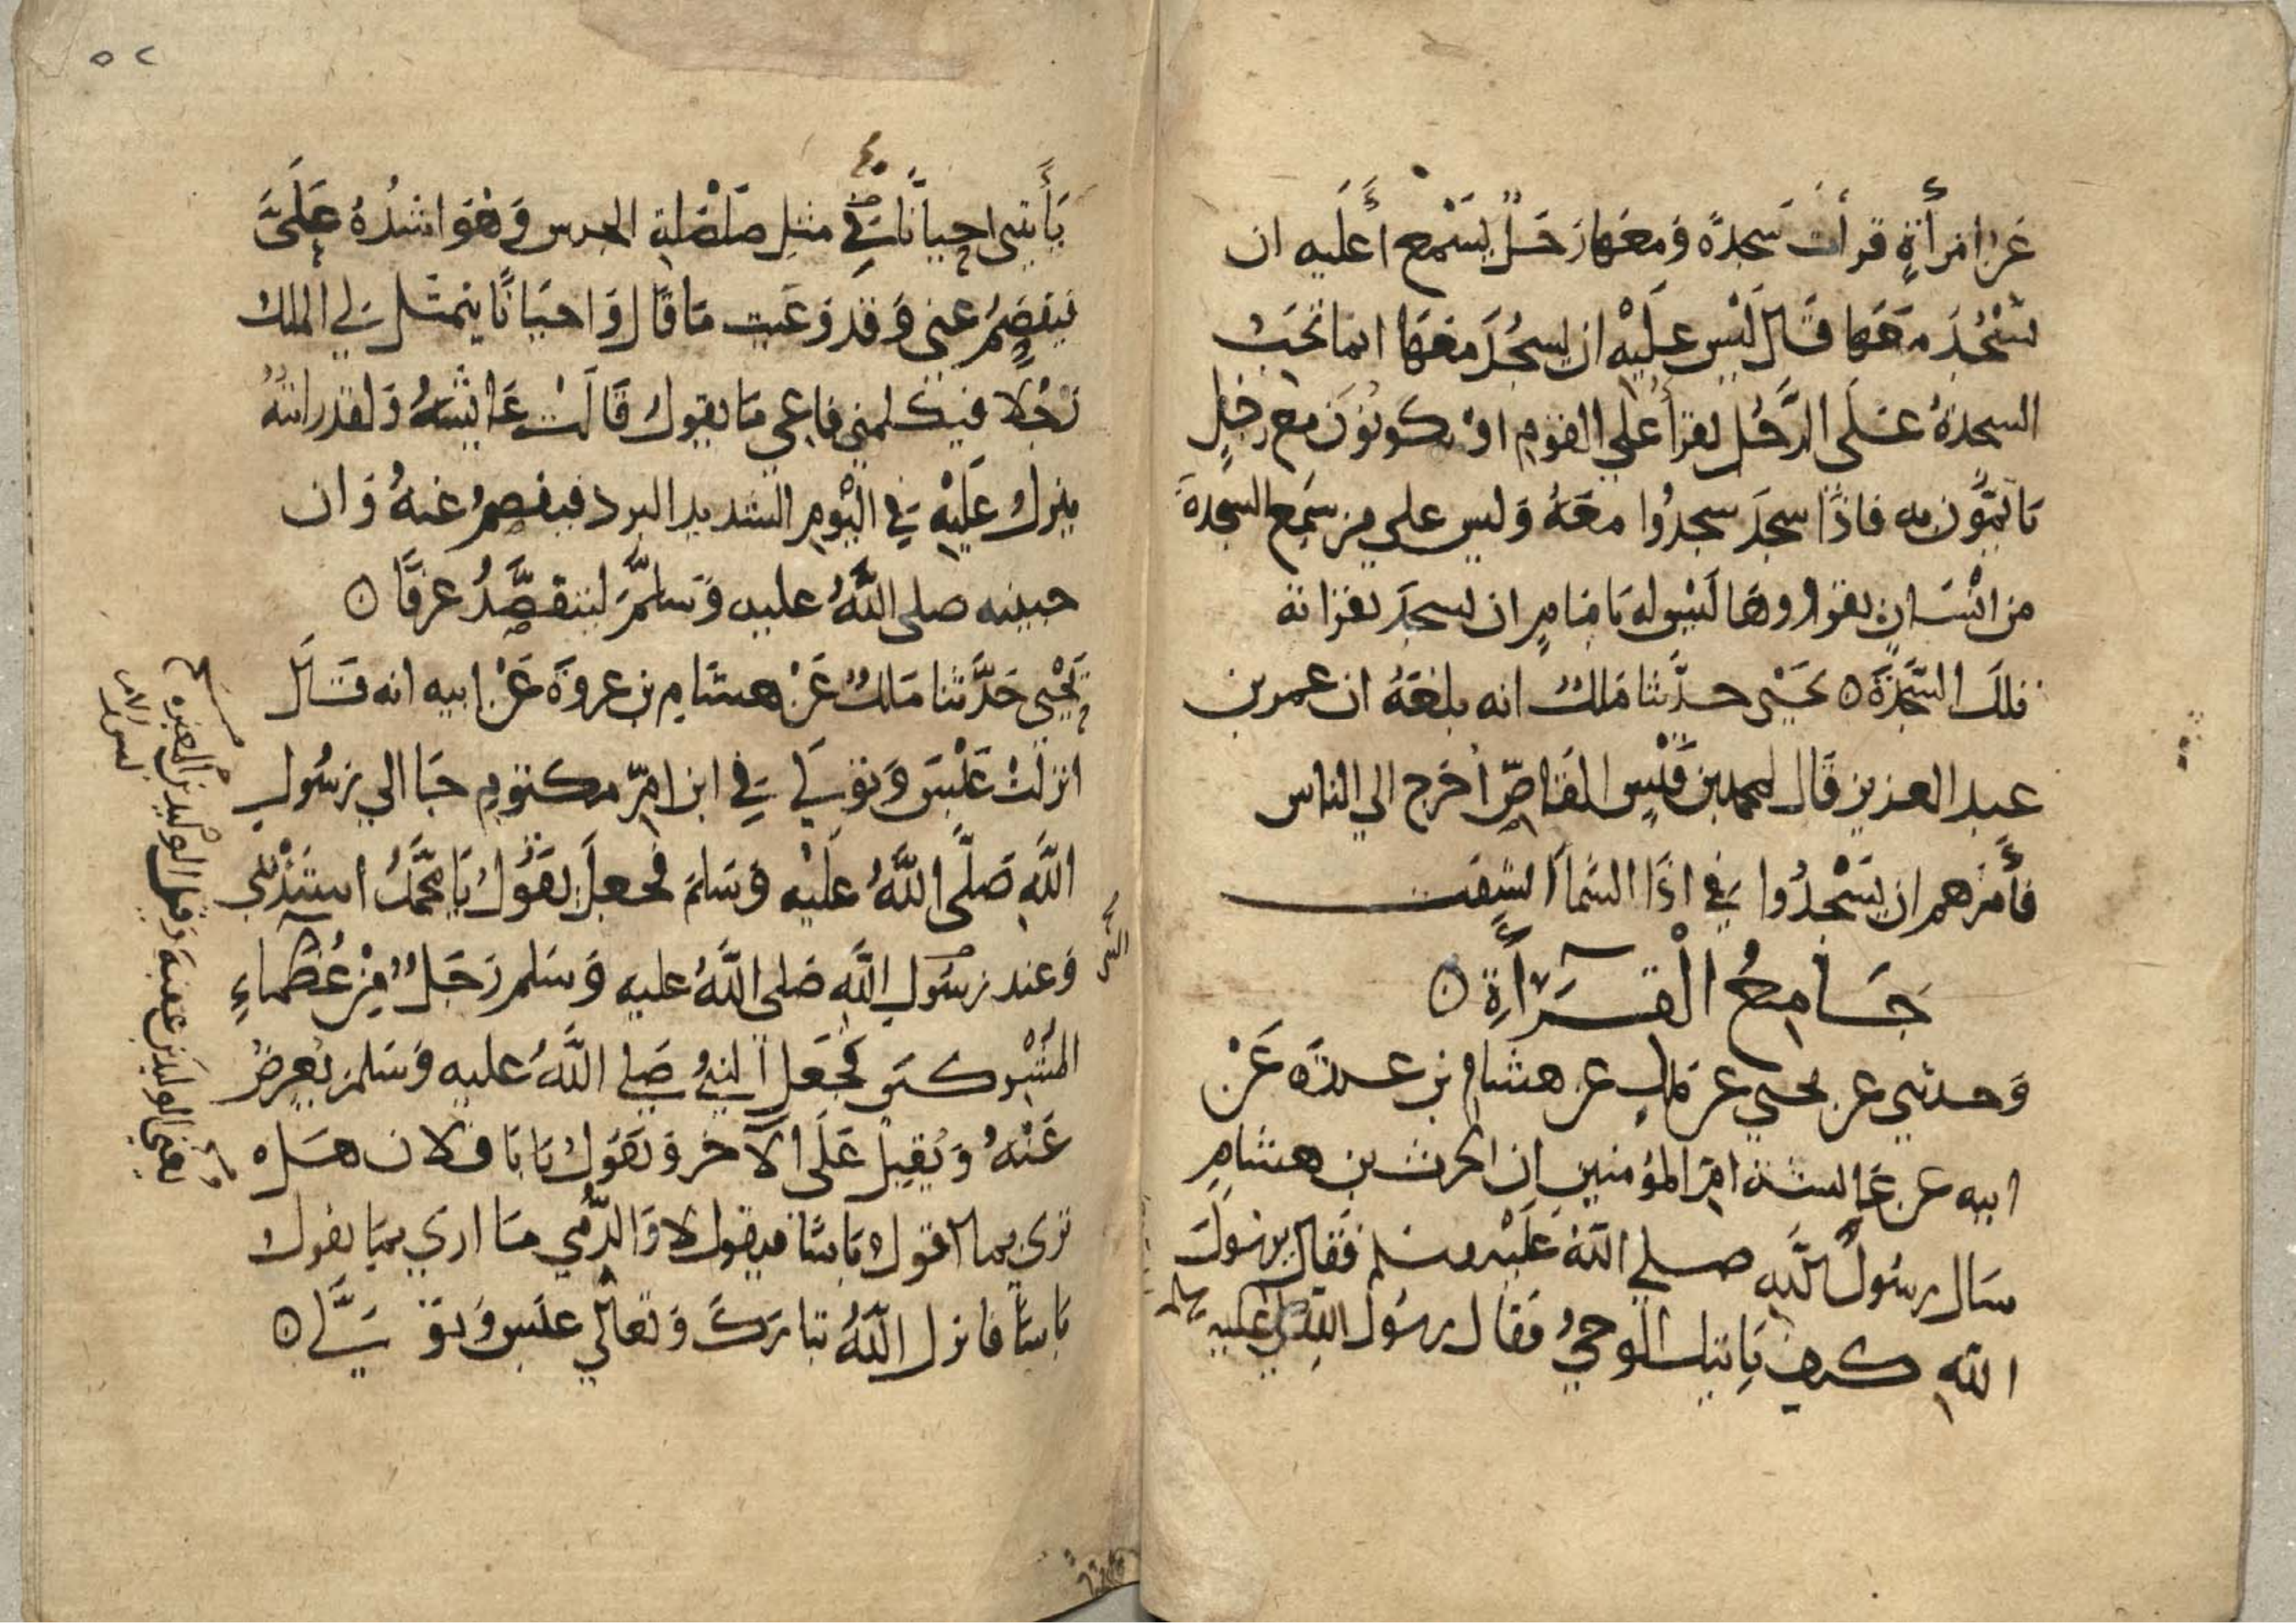 عَن امرأةٍ قرأت سَجدةً وَمعَها رَجلٌ يَسْمع أَعليه ان
يَسْجُدَ معَهَا قَال لَيْس علَيْه ان يسجُدَ معَهَا انما تجَبُ
السجدةُ عَلَى الرَّجُل يقرأ علي القوم اوْ يكونوُن مع رجلٍ
يَاتمُّون به فاذَا سجدَ سجدُوا معَهُ وَليس علي من سَمِع السجدةَ
من انْسَانٍ يقرؤها لَيْس له بَامَامٍ ان يسجدَ بقرااته
تلكَ السَّجْدَةَ ٥ يَحيَي حدَّثنا مَالكٌ انه بلغَهُ ان عمر بن
عبد العزيز قَال لمحمد بن قَيْسٍ القَاصِّ اخرج الي الناس
فأمُرهم ان يَسْجُدُوا فِي اذَا السَّمَاُ انشقت
جَامِعُ الْقرَاَءةِ ٥
وَحدثني عن يحيي عن مالك عن هشام بن عروة عَنْ
ابيه عن عَايشة امّ المؤمنين ان الحرث بن هشامٍ
سَال رسُولَ اللَّهِ صلي اللَّهُ عَلَيْه وسلم فَقَال يرسُولَ
اللَّهِ كيف يَاتيك الْوحيُ فقَال رسُول اللهِ صلي الله عليه وسلم
٥٢
يَأَتيني احيَانًا فِي مثلِ صَلْصَلةِ الجرس وَهُوَ اشدُهُ عَلَيَّ
فيفصِمُ عنِي وَقدْ وَعَيت مَا قَال وَاحيَانًا يتمثل لِي الملكُ
رَجُلا فيكلمني فاعِي مَا يقول قَالَتْ عَايشَةُ وَلقد رايتُهُ
ينزلُ عَليْه فِي اليْوم الشديد البرد فيفصمُ عَنهُ وَان
جبينه صلي اللَّهُ عليه وَسلمَ ليتفصَّدُ عَرقًا ٥
يَحْيَي حَدَّثنا مَالكٌ عَنْ هشَامِ بن عروَةَ عَنْ ابيه انه قَال
انزلَتْ عَبَسَ وَتوَلي فِي ابن امّ مكتوم جَا الي رسُولِ
اللَّهِ صَلَّى اللَّهُ عَلَيْه وَسَلمَ فجعلَ يقُولُ يَا مُحَمَّدُ استَدْنني
وَعند رسُولِ اللَّهِ صَلى اللَّهُ عليه وَسَلم رَجلٌ مِنْ عُظَمَاءِ
المشركين فجَعل النبيُّ صَلي اللَّهُ عليه وَسَلم يُعرِضُ
عَنْهُ وَيُقبِلُ عَلَى الْآخر وَيَقوُلُ يَابَا فلان هَل
تري بما اقولُ بَاسًا فيقول لا وَالدُّمي مَا اري بما يقول
بَاسًا فانزل اللَّهُ تبَارَكَ وَتعَالي عَبَس وَتوَلَّي ٥
النبي